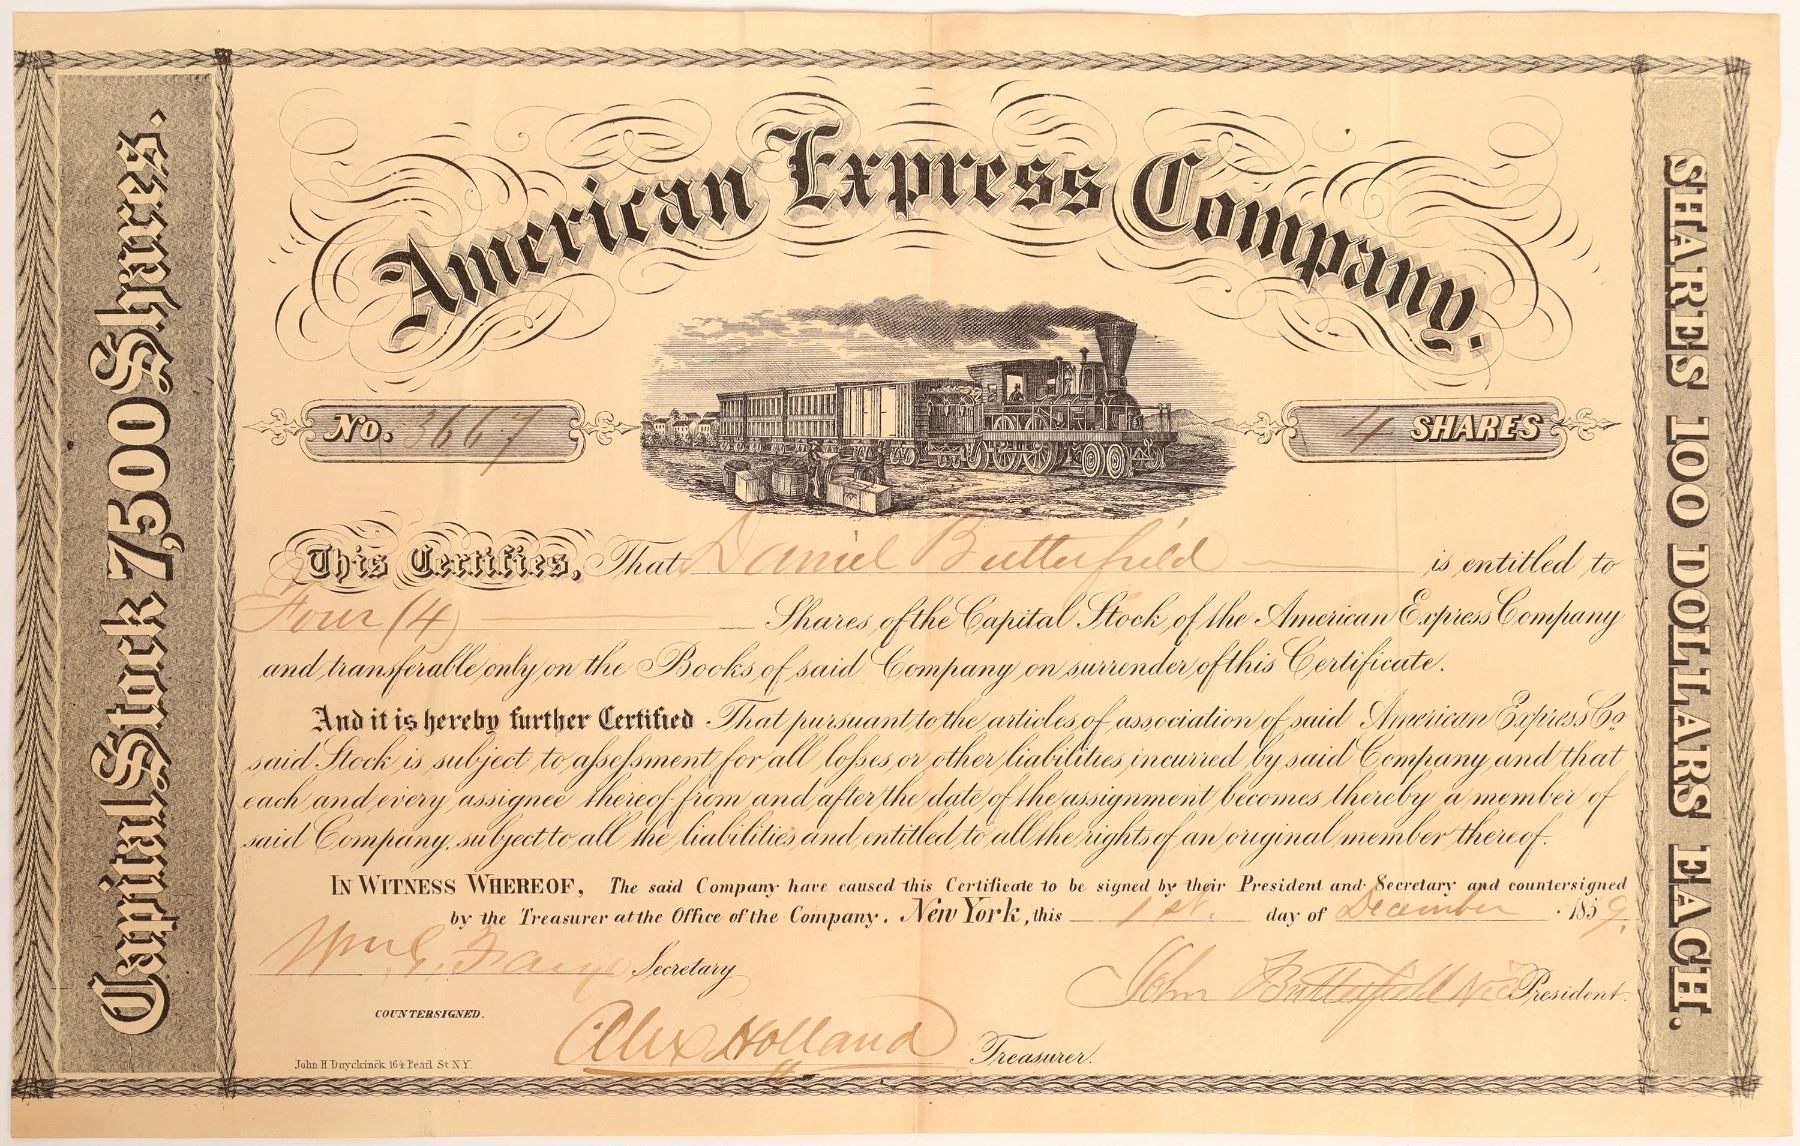 American Express Company.
Capital Stock 7,500 Shares.
SHARES 100 DOLLARS EACH.
No. 3667
4 SHARES
This Certifies, That Daniel Butterfield is entitled to
Four (4) Shares of the Capital Stock of the American Express Company
and transferable only on the Books of said Company on surrender of this Certificate.
And it is hereby further Certified That pursuant to the articles of association of said American Express Co.
said Stock is subject to assessment for all losses or other liabilities incurred by said Company and that
each and every assignee thereof from and after the date of the assignment becomes thereby a member of
said Company, subject to all the liabilities and entitled to all the rights of an original member thereof.
IN WITNESS WHEREOF, The said Company have caused this Certificate to be signed by their President and Secretary and countersigned
by the Treasurer at the Office of the Company. New York, this 1st. day of December 1859.
Wm G. Fargo Secretary
John Butterfield Vice President.
COUNTERSIGNED.
Alex Holland Treasurer.
John. H. Duyckinck 164 Pearl St. N.Y.